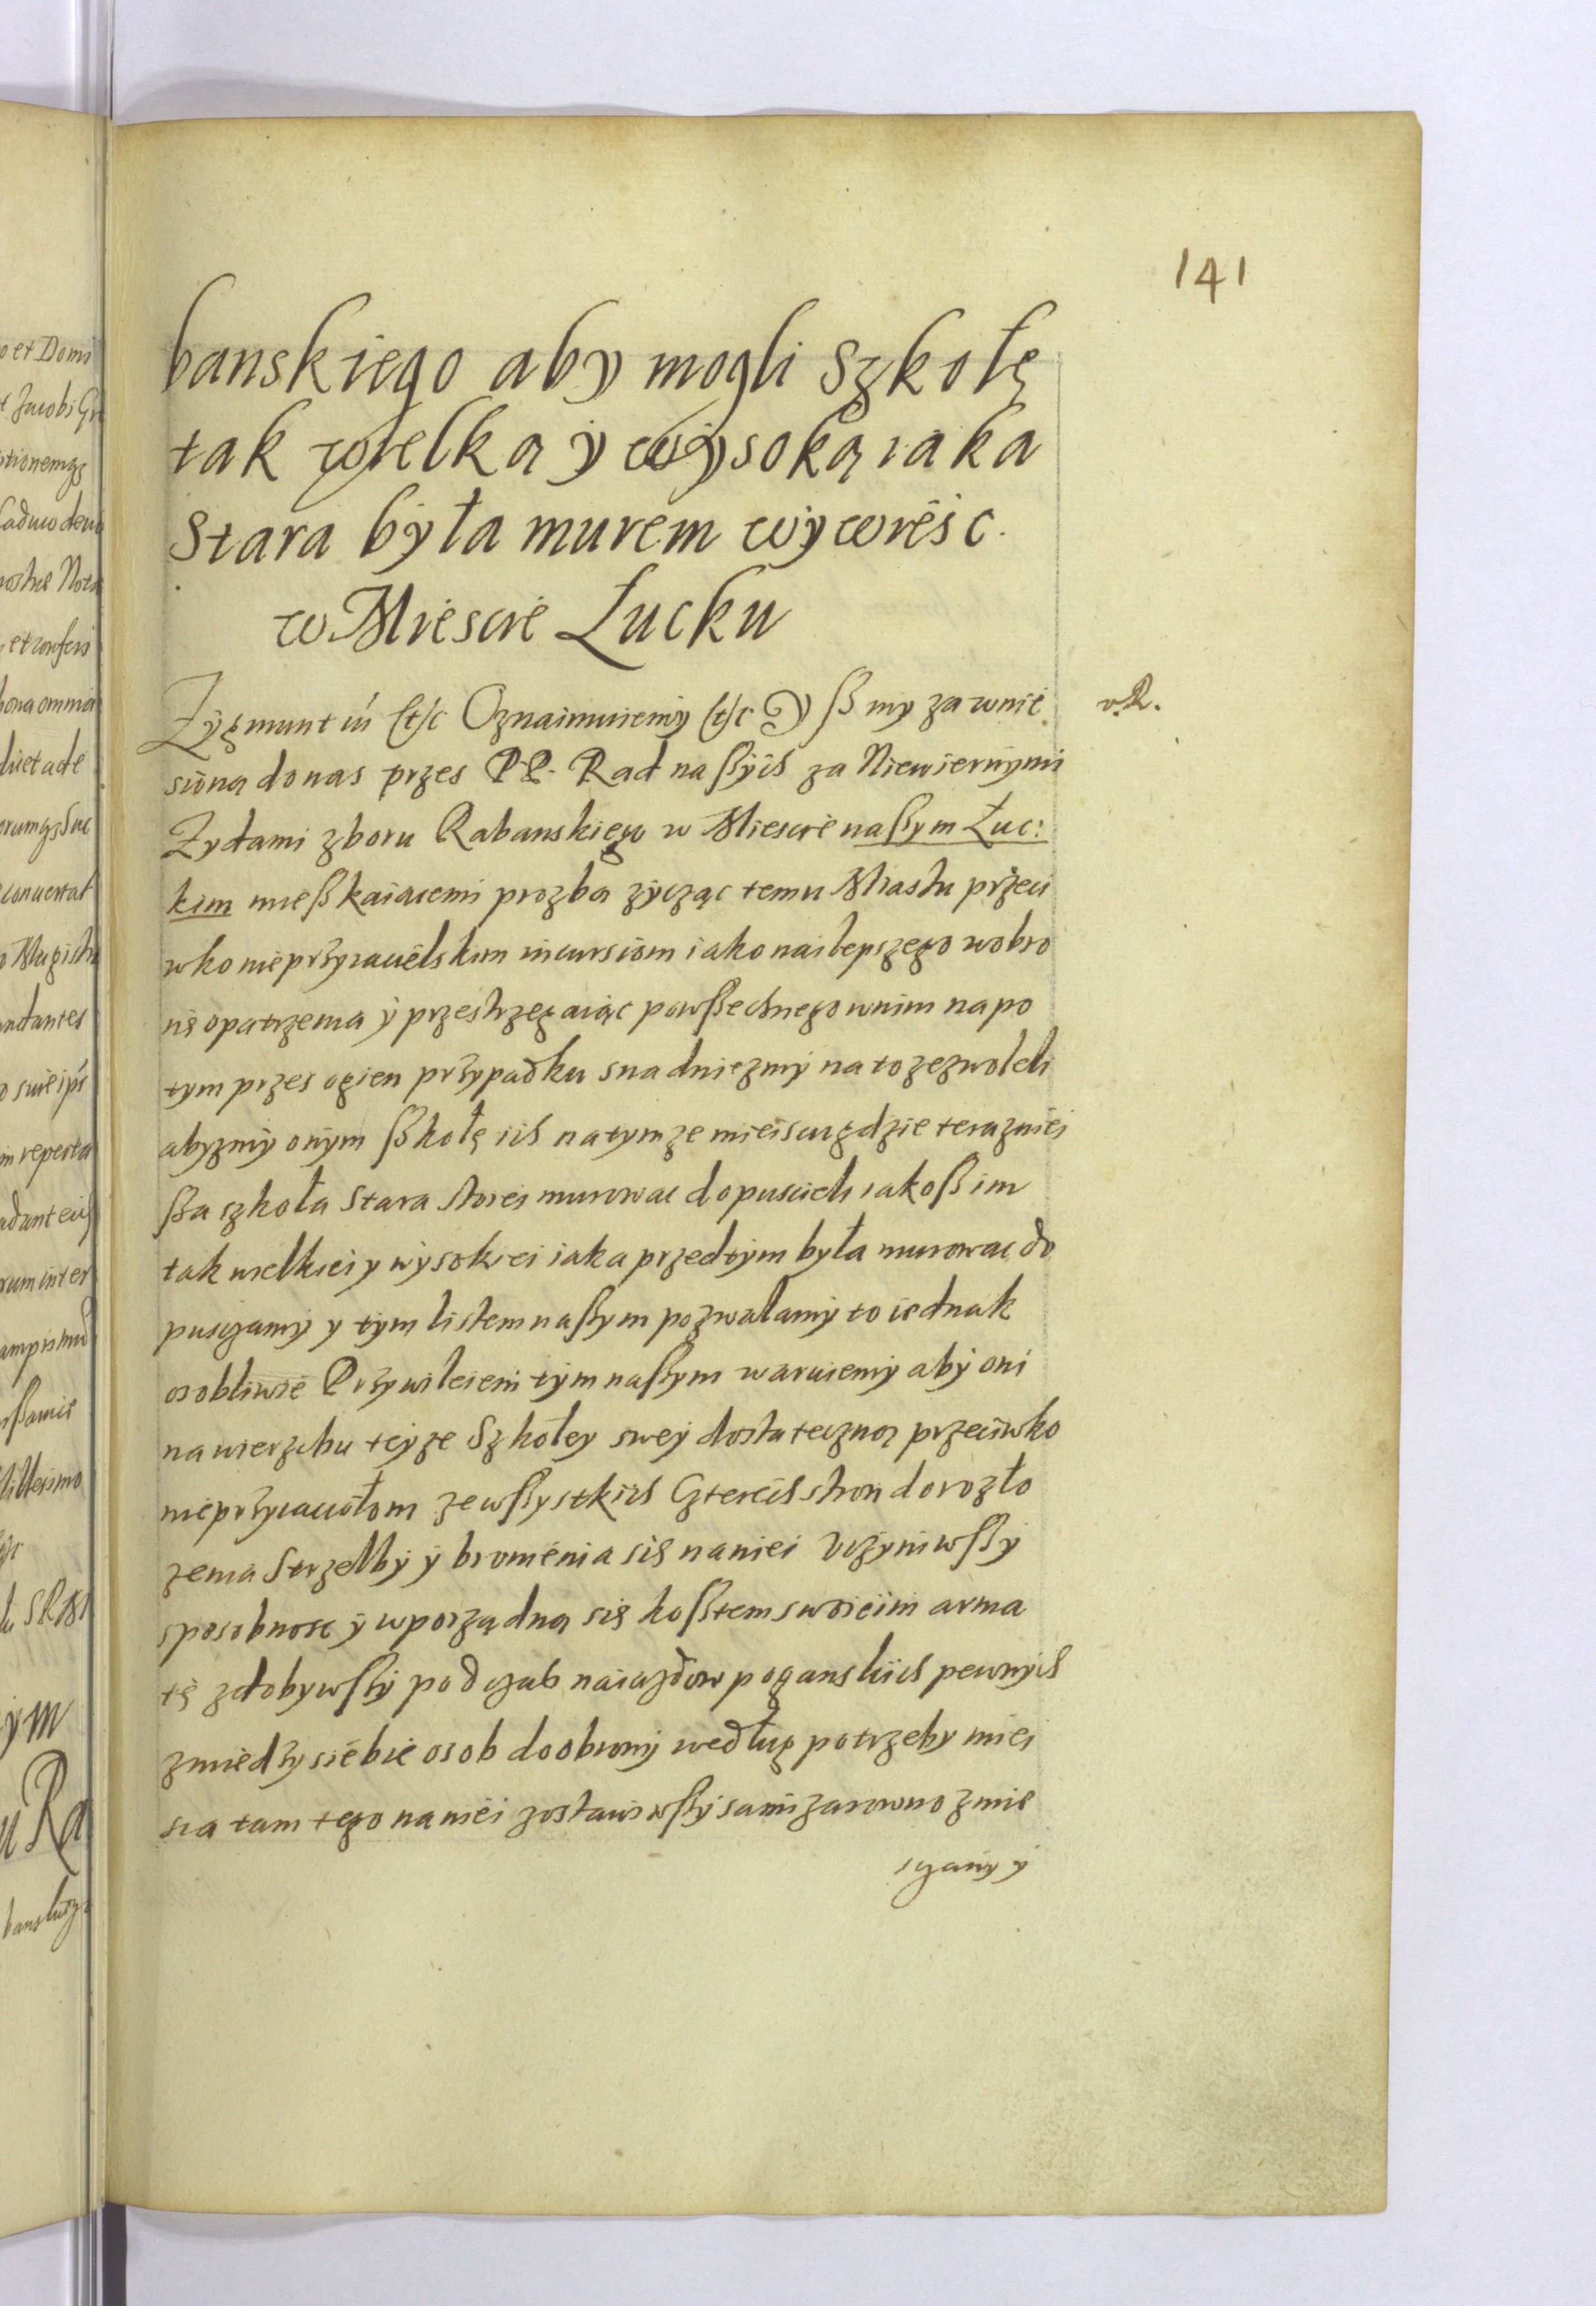 141
banskiego aby mogli Szkołę
tak wielką y wysoką iaka
Stara była murem wywieśc.
w Miescie Łucku
Zygmunt iii (et)c Oznaimuiemy (et)c Yß my za wnie v.R.
sioną do nas przes P.P. Rad naßych za Niewiernymi
Zydami zboru Rabanskiego w Miescie naßym Łuc:
kim mießkaiacemi prozbą zycząc temu Miastu przeci
wko nieprzyiacielskim incursiom iako nailepszego wobro
nię opatrzenia y przestrzegaiąc powßechnego wnim napo
tym przes ogien przypadku snadniezmy na to zezwoleli
abyzmy onym ßkołę ich natymze mieiscu gdzie terazniei
ßa szkoła Stara stoiei murowac dopuscieli iakoß im
tak wielkiei y wysokiei iaka przedtym była murowac do
pusczamy y tym listem naßym pozwalamy to iednak
osobliwie Przywileiem tym naßym waruiemy aby oni
na wierzchu teyze Szkoley swey dostateczną przeciwko
nieprzyiaciołom zewßystkich Czterech stron do rozło
zenia Strzelby y bronienia się naniei vczyniwßy
sposobnosc y wporządną się kosztem swoieiim arma
tę zdobywßy pod czas naiazdow poganskiich pewnych
zmiedzy siebie osob do obrony według potrzeby miei
sca tamtego naniei zostawiwßy sami zarowno zmie
sczany y
o et Domi
t Jacobi Gr
nostre Nota
bona omnia
conuertat
Magistr
in reperta
rum inter
ym
u Ra